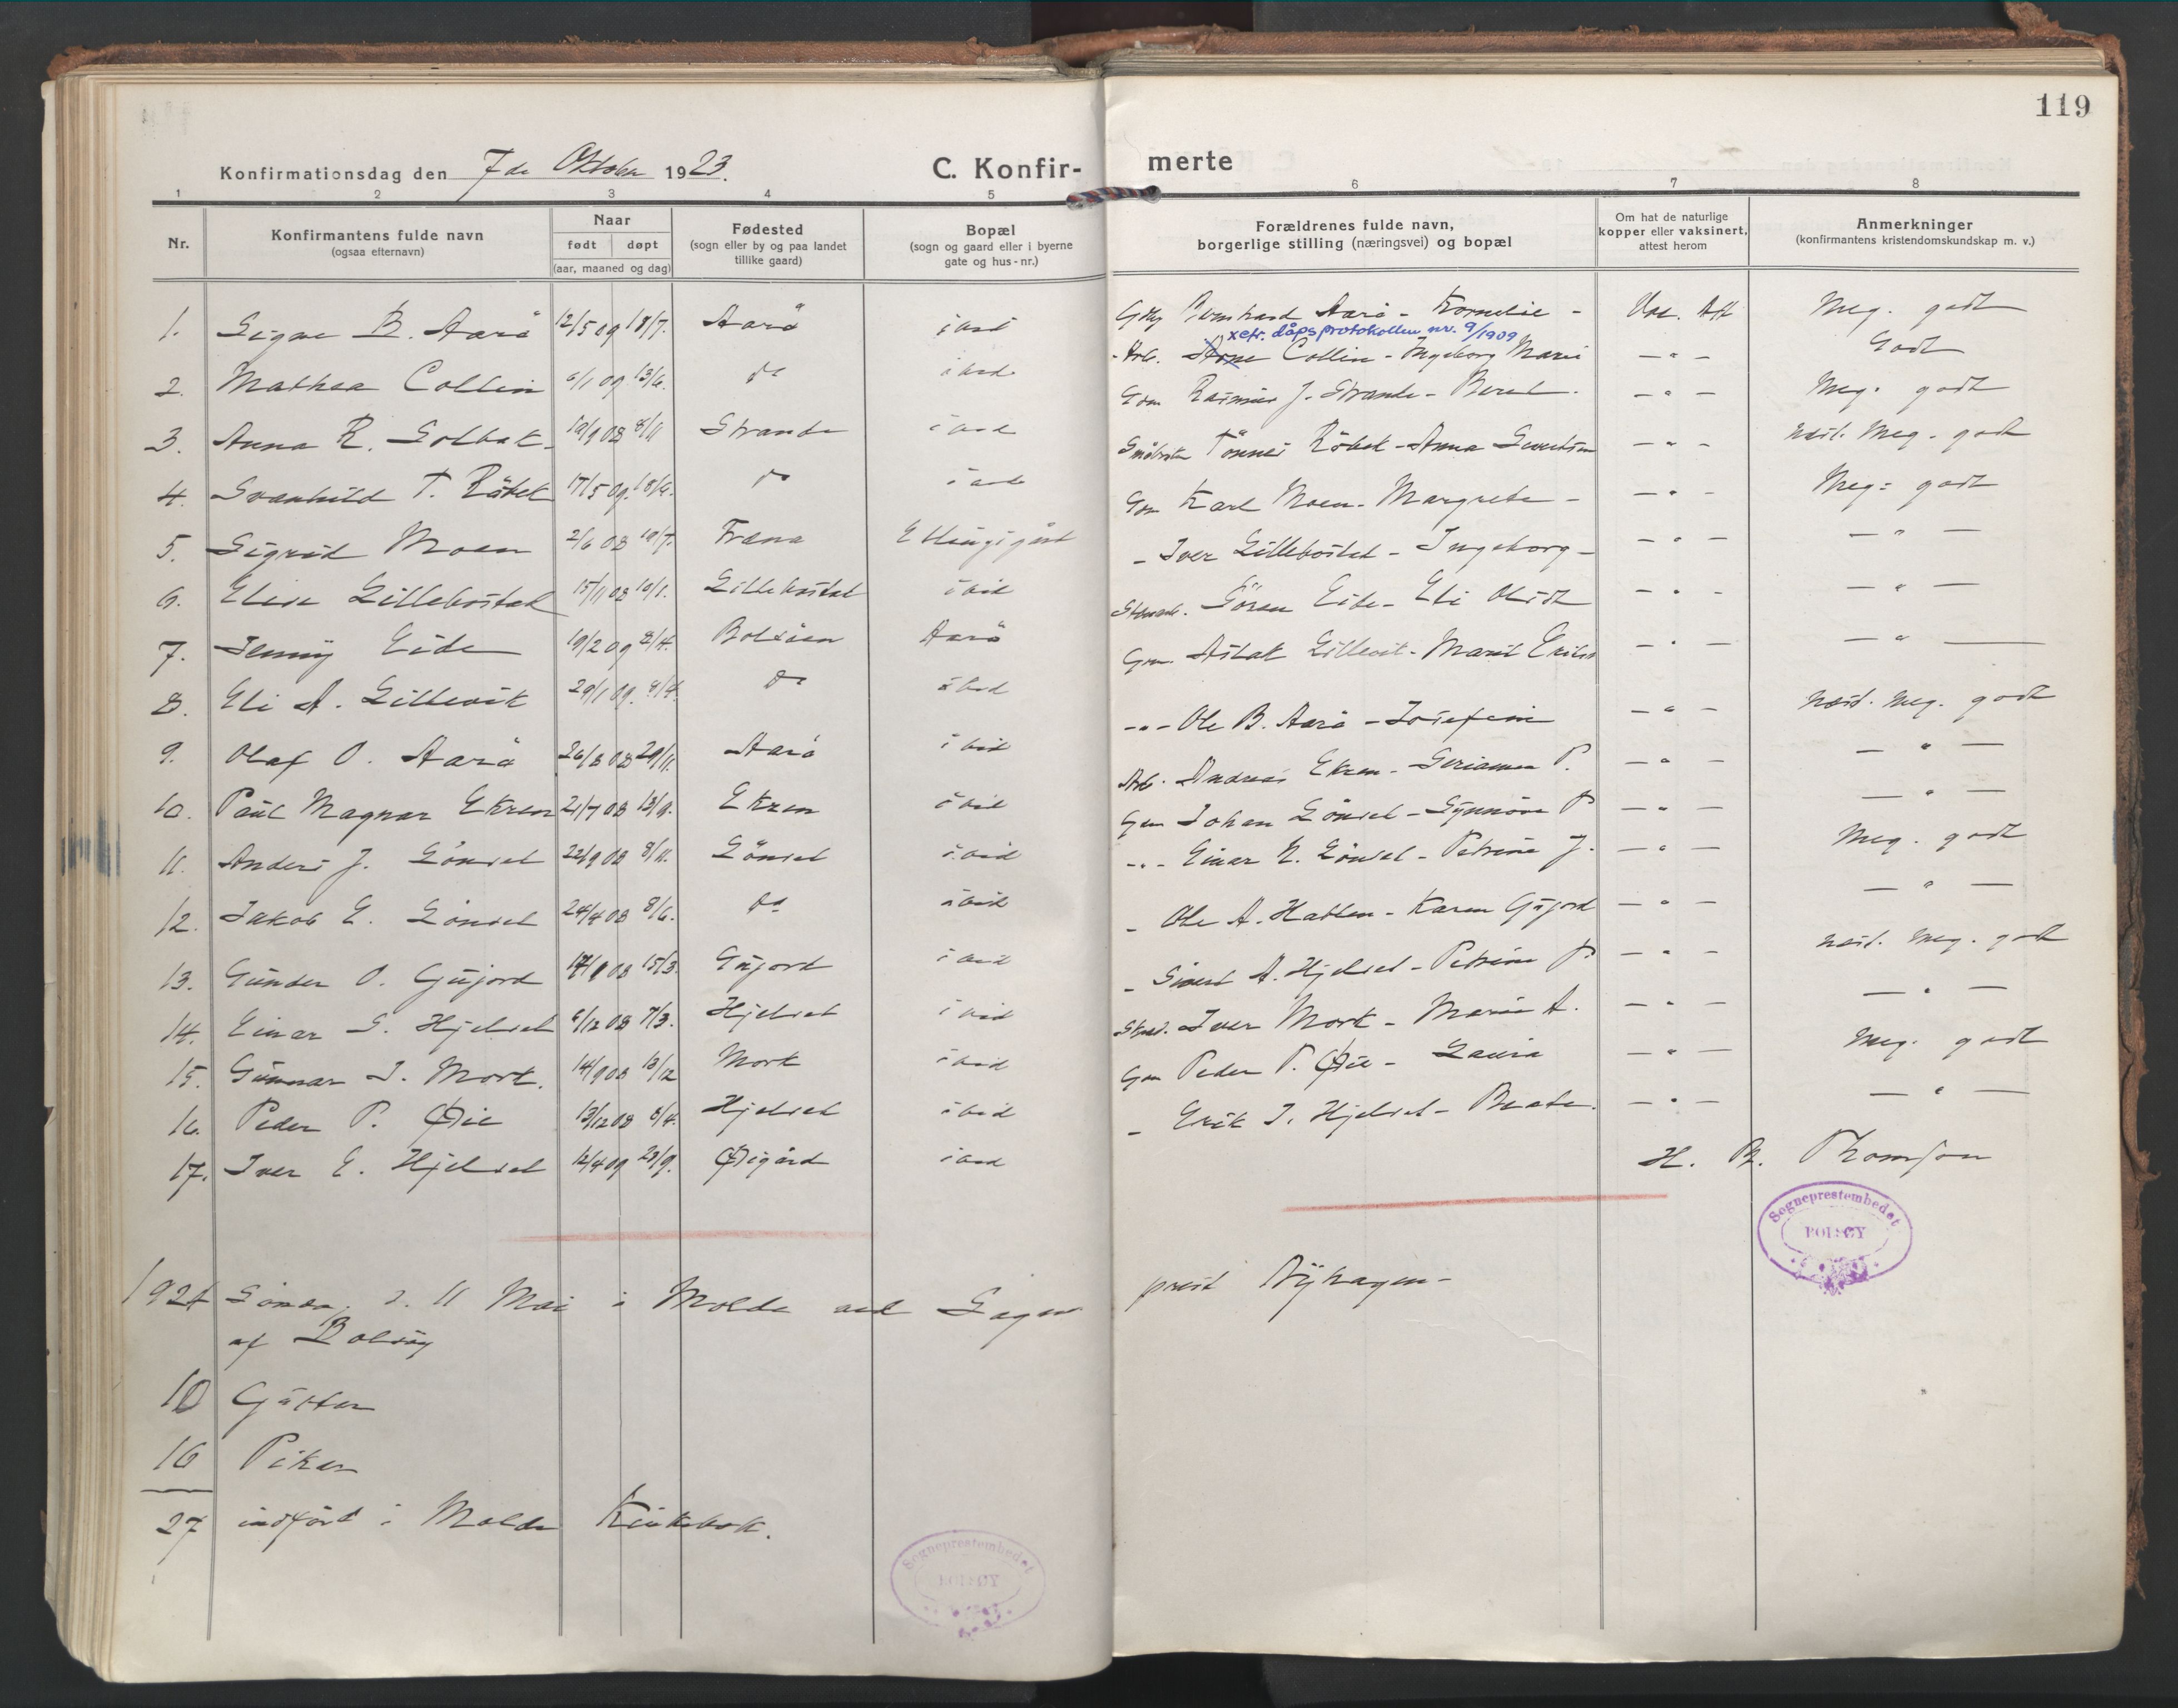 119
Konfirmationsdag den 7de Oktober 1923.
C. Konfir- merte
1 2 3 4 5 6 7 8
Nr.
Konfirmantens fulde navn
(ogsaa efternavn)
Naar
født døpt
(aar, maaned og dag)
Fødested
(sogn eller by og paa landet
tillike gaard)
Bopæl
(sogn og gaard eller i byerne
gate og hus-nr.)
Forældrenes fulde navn,
borgerlige stilling (næringsvei) og bopæl
Om hat de naturlige
kopper eller vaksinert,
attest herom
Anmerkninger
(konfirmantens kristendomskundskap m. v.)
1. Signe B. Aarö 12/5 09 18/7. Aarö ibid Bernhard Aarö - Kornelie - Vac. Att Meg. godt
xcfr. dåpsprotokollen nr. 9/1909
2. Mathea Collin 6/1 09 13/6. do ibid Arb. Collin - Ingeborg Marie — " — Godt
3. Anna R. Solbak 19/9 08 8/11 Strande ibid Gm Rasmus J. Strande - Beret. — " — Meg. godt
4. Svanhild T. Röbek 17/5 09. 18/6. do ibid Tönnes Röbek - Anna — " — Næst. Meg. godt
5. Sigrid Moen 2/6 08 19/7. Fræna Gm Karl Moen - Margrete - — " — Meg. godt
6. Elise Lillebostad 15/11 08 10/1. Lillebostad ibid - Iver Lillebostad - Ingeborg - — " — — " —
7. Jenny Eide 19/2 09 2/4. Bolsöen Aarö Sören Eide - Eli — " — — " —
8. Eli A. Lillevik 29/1 09. 4/4. do ibid Gm. Aslak Lillevik - Marit — " — — " —
9. Olaf O. Aarö 26/8 08 29/11. Aarö ibid - " - Ole B. Aarö - Josefine — " — Næst. Meg. godt
10. Paul Magnar Ekren 21/7 08 13/9. Ekren ibid Arb. Andreas Ekren - P. — " — — " —
11. Anders J. Lönset 22/9 08 8/11. Lönset ibid Gm Johan Lönset - Synnöve P — " — — " —
12. Jakob E. Lönset 24/4 08 8/6. do ibid - " - Einar N. Lönset - Petrine J. — " — Meg. godt
13. Gunder O. Gujord 08 15/3. Gujord ibid - Ole A. Hatlen - Karen Gujord — " — — " —
14. Einar S. Hjelset 6/12 08 7/3. Hjelset ibid - Sivert A. Hjelset - Petrine P. — " — næst. Meg. godt
15. Gunnar I. Mork. 14/9 08 13/12 Mork ibid Iver Mork - Marie A. — " — — " —
16. Peder P. Øie 13/12 08 5/4. Hjelset ibid Gm Peder P. Øie - Laura — " — Meg. godt
17. Iver E. Hjelset 12/4 09 23/9. Øigård ibid - Erik I. Hjelset - Beate. — " — — " —
H. B. Thomson
Sogneprestembedet
BOLSØY
1924 Söndag d. 11 Mai i Molde ved Sogneprest Nyhagen -
af Bolsöy
10 Gutter
16 Piker
27 indfört i Molde Kirkebok.
Sogneprestembedet
BOLSØY